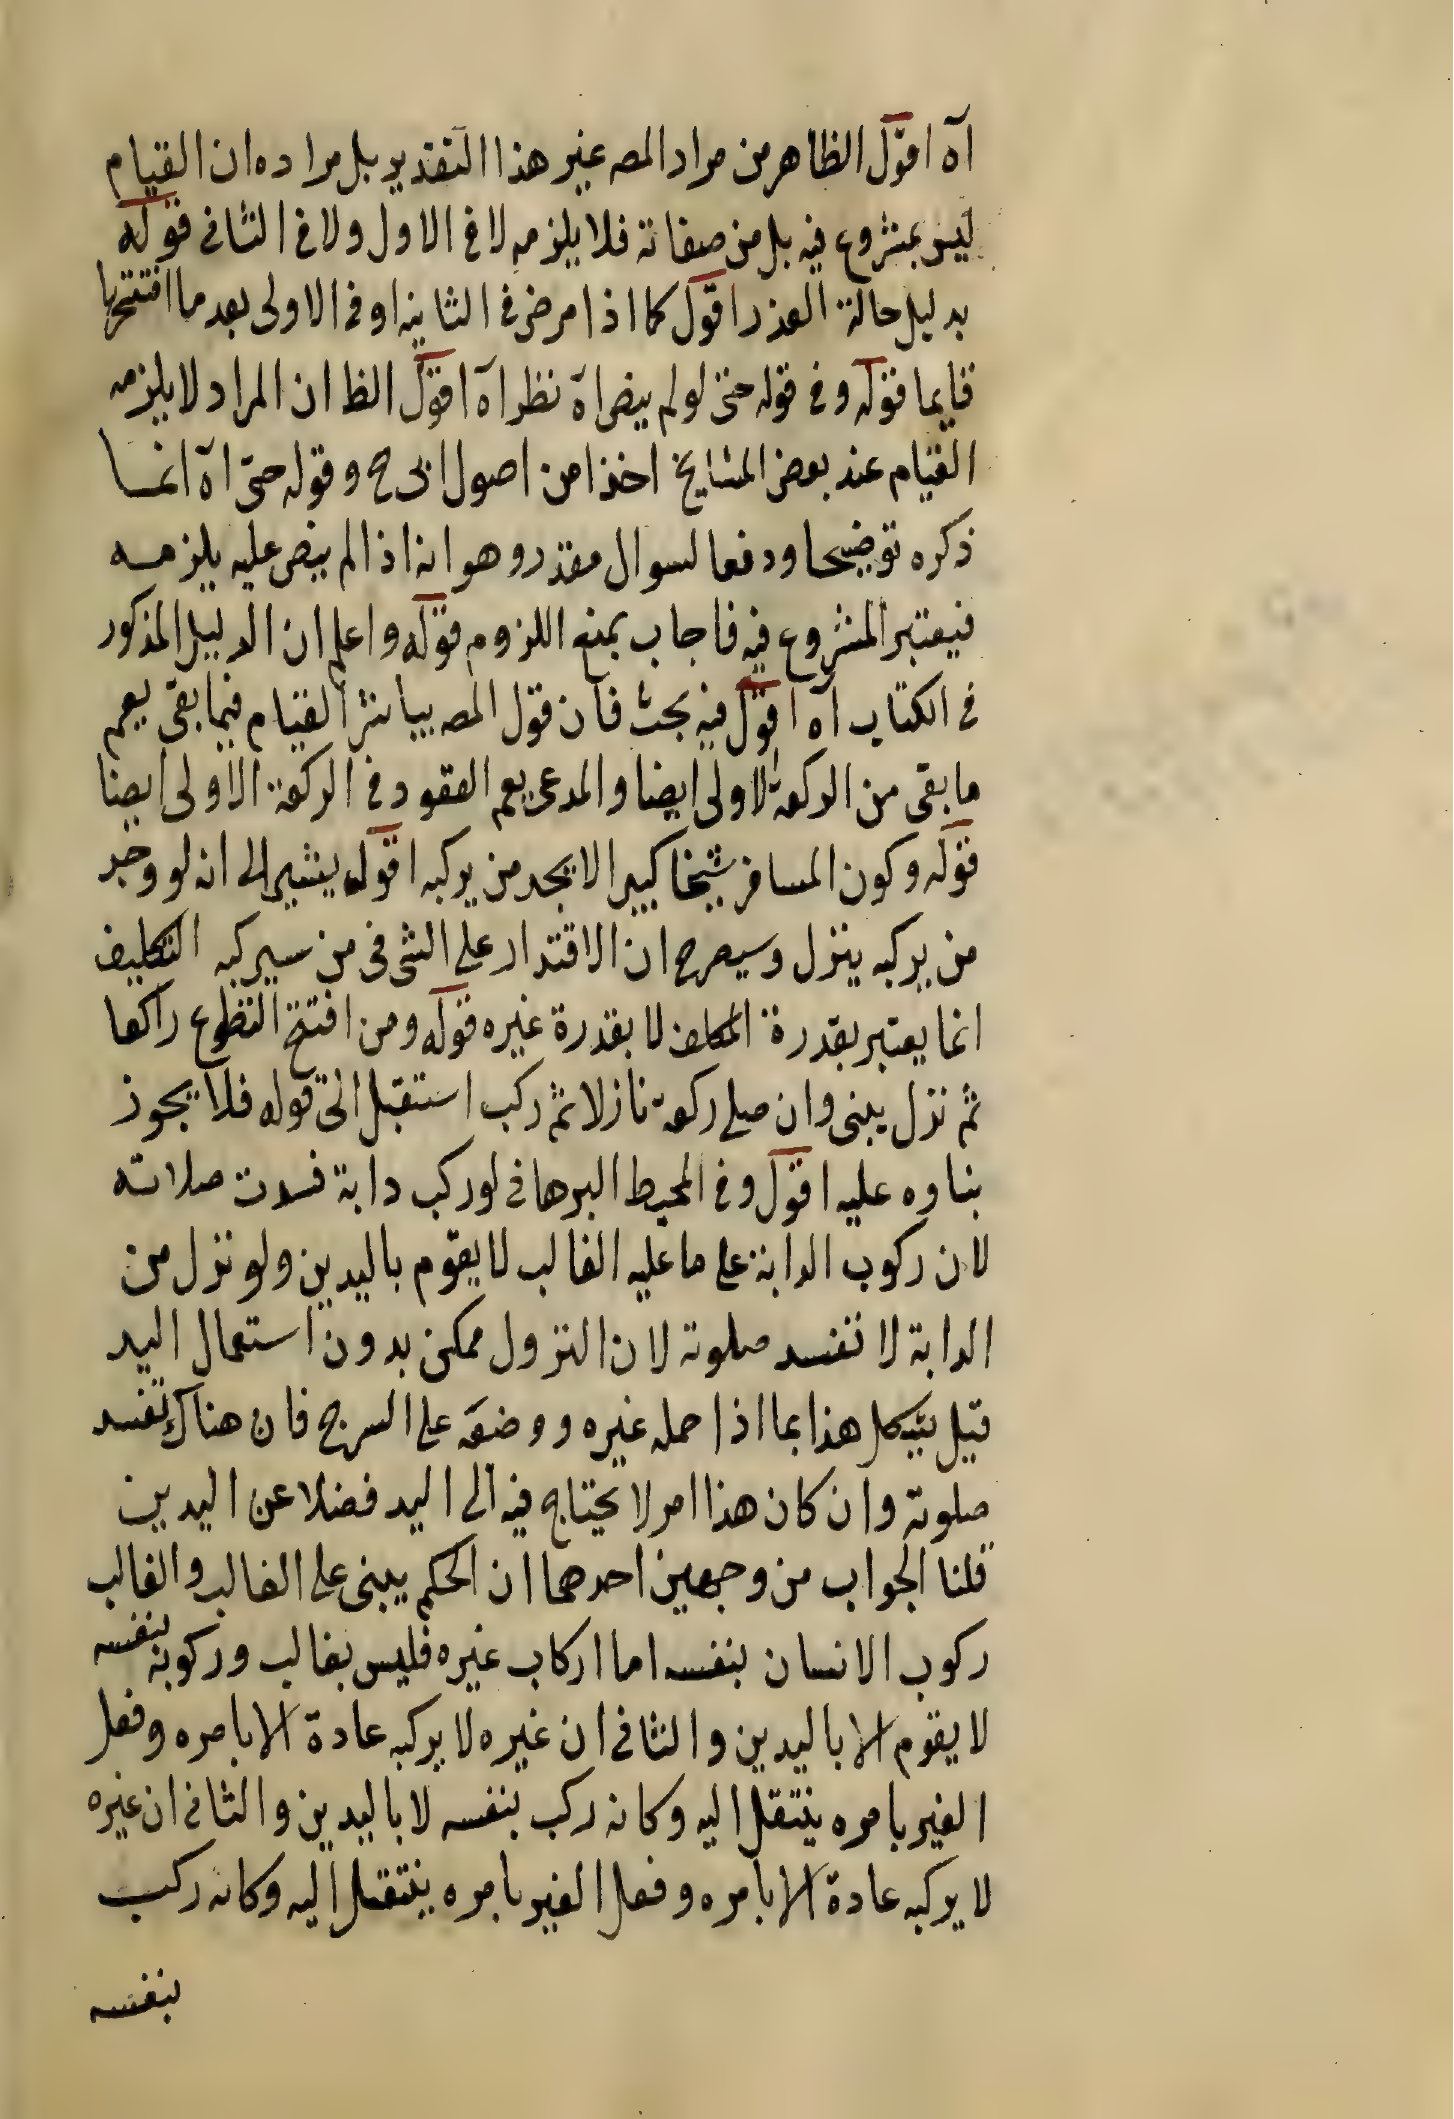 آه اقول الظاهر من مراد المصه غير هذا التقدير بل مراده ان القيام
ليس بمشروع فيه بل من صفاته فلا يلزمه لا في الاول ولا في الثاني قوله
بدليل حالة العذر اقول كما اذا مرض في الثانية او في الاولى بعد ما افتتحها
قايما قوله وفي قوله حتى لو لم ينص آه نظر آه اقول الظ ان المراد لا يلزمه
القيام عند بعض المشايخ اخذا من اصول ابى ح وقوله حتى آه انما
ذكره توضيحا ودفعا لسوال مقدر وهو انه اذا لم ينص عليه يلزمه
فيعتبر المشروع فيه فاجاب بمنع اللزوم قوله واعلم ان الدليل المذكور
في الكتاب آه اقول فيه بحث فان قول المصه يباشر القيام فيما بقى يعم
ما بقى من الركعة الاولى ايضا والمدعى يعم القعود في الركعة الاولى ايضا
قوله وكون المسافر شيخا كبيرا لا يجد من يركبه اقول يشير الى انه لو وجد
من يركبه ينزل وسيصرح ان الاقتدار على الشى فى من سيركبه التكليف
انما يعتبر بقدرة المكلف لا بقدرة غيره قوله ومن افتتح التطوع راكعا
ثم نزل يبنى وان صلى ركعة نازلا ثم ركب استقبل الى قوله فلا يجوز
بناوه عليه اقول وفي المحيط البرهانى لو ركب دابة فسدت صلاته
لان ركوب الدابة على ما عليه الغالب لا يقوم باليدين ولو نزل من
الدابة لا تفسد صلوته لان النزول ممكن بدون استعمال اليد
قيل يشكل هذا بما اذا حمله غيره ووضعه على السرج فان هناك تفسد
صلوته وان كان هذا امر لا يحتاج فيه الى اليد فضلا عن اليدين
قلنا الجواب من وجهين احدهما ان الحكم يبنى على الغالب والغالب
ركوب الانسان بنفسه اما اركاب غيره فليس بغالب وركوبه بنفسه
لا يقوم الا باليدين والثانى ان غيره لا يركبه عادة الا بامره وفعل
الغير بامره ينتقل اليه وكانه ركب بنفسه لا باليدين والثانى ان غيره
لا يركبه عادة الا بامره وفعل الغير بامره ينتقل اليه وكانه ركب
بنفسه